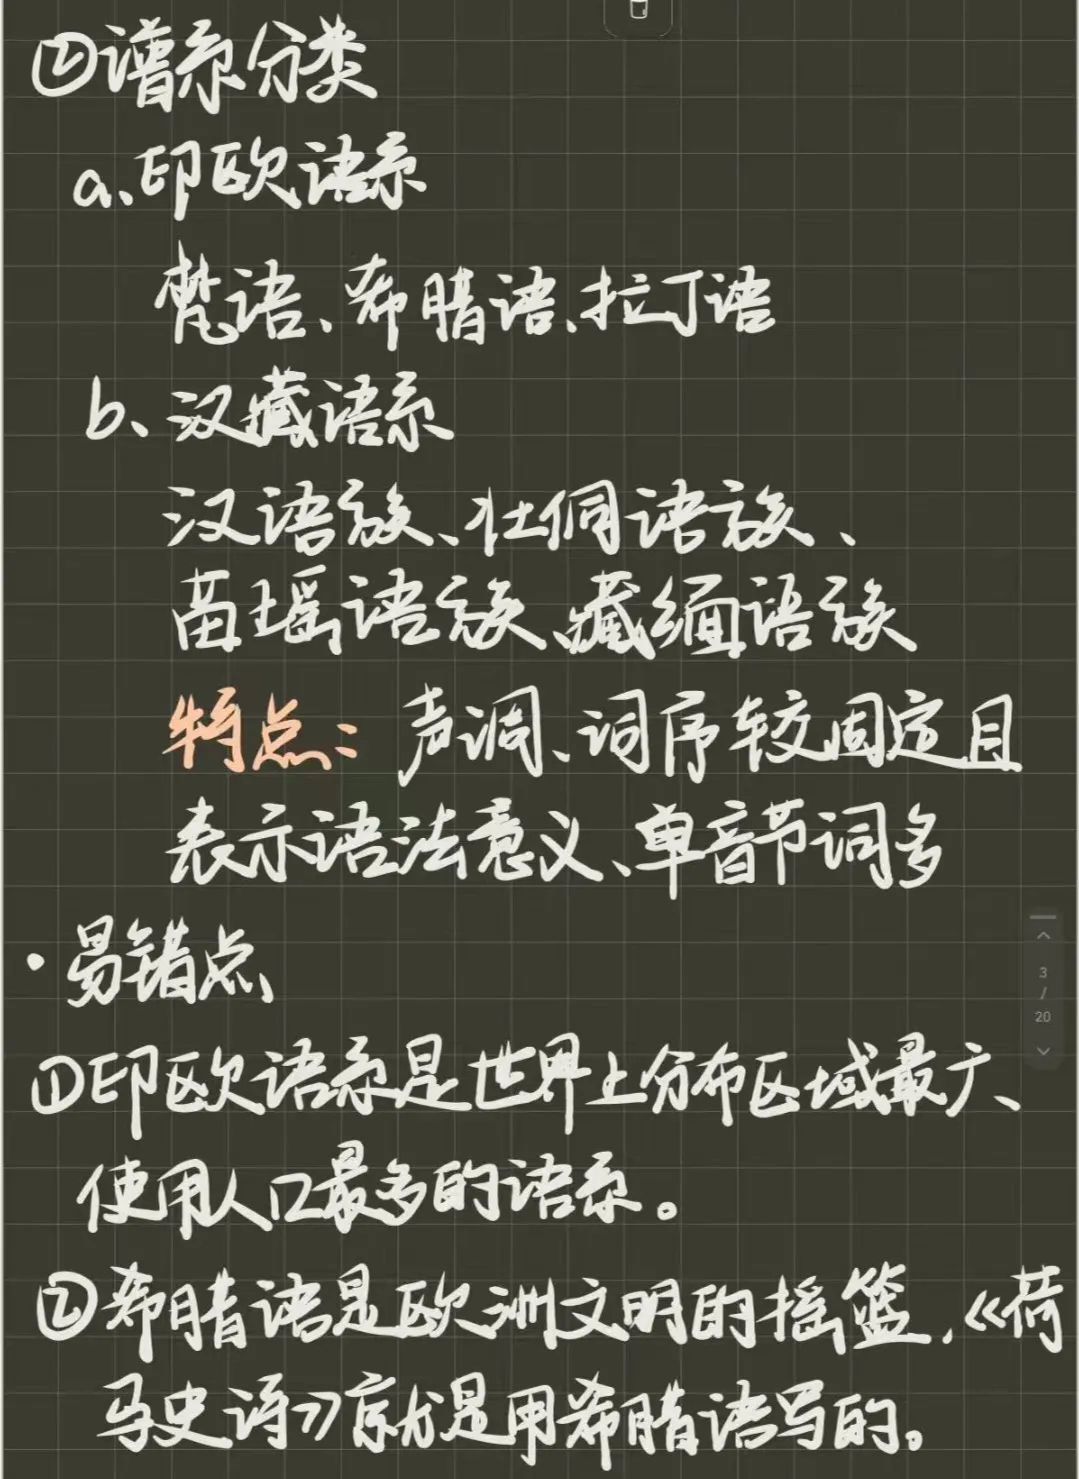 ②谱系分类
a、印欧语系
梵语、希腊语、拉丁语
b、汉藏语系
汉语族、壮侗语族、
苗瑶语族、藏缅语族
特点：声调、词序较固定且
表示语法意义、单音节词多
·易错点、
①印欧语系是世界上分布区域最广、
使用人口最多的语系。
②希腊语是欧洲文明的摇篮，《荷
马史诗》就是用希腊语写的。
3
/
20